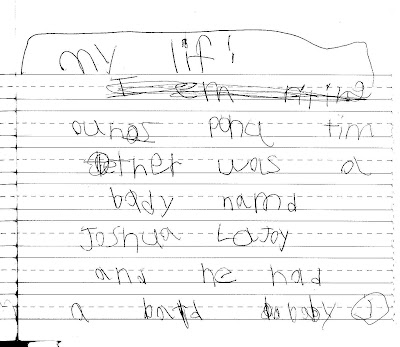 my lif!
I em riting
ouncs ponu tim
ther was a
bady namd
Joshua LaJoy
and he had
a batd baby 1